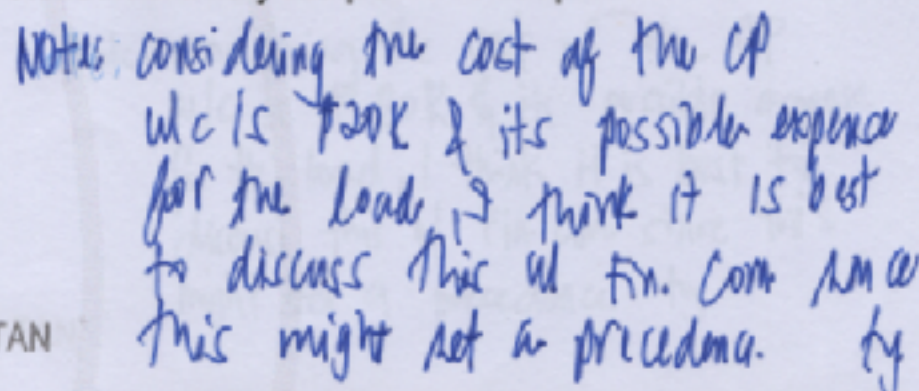 Notes: considering the cost of the CP
w/c is ₱20K & its possible expense
for the load, I think it is best
to discuss this w/ Fin. Com since
TAN this might set a precedence. ty